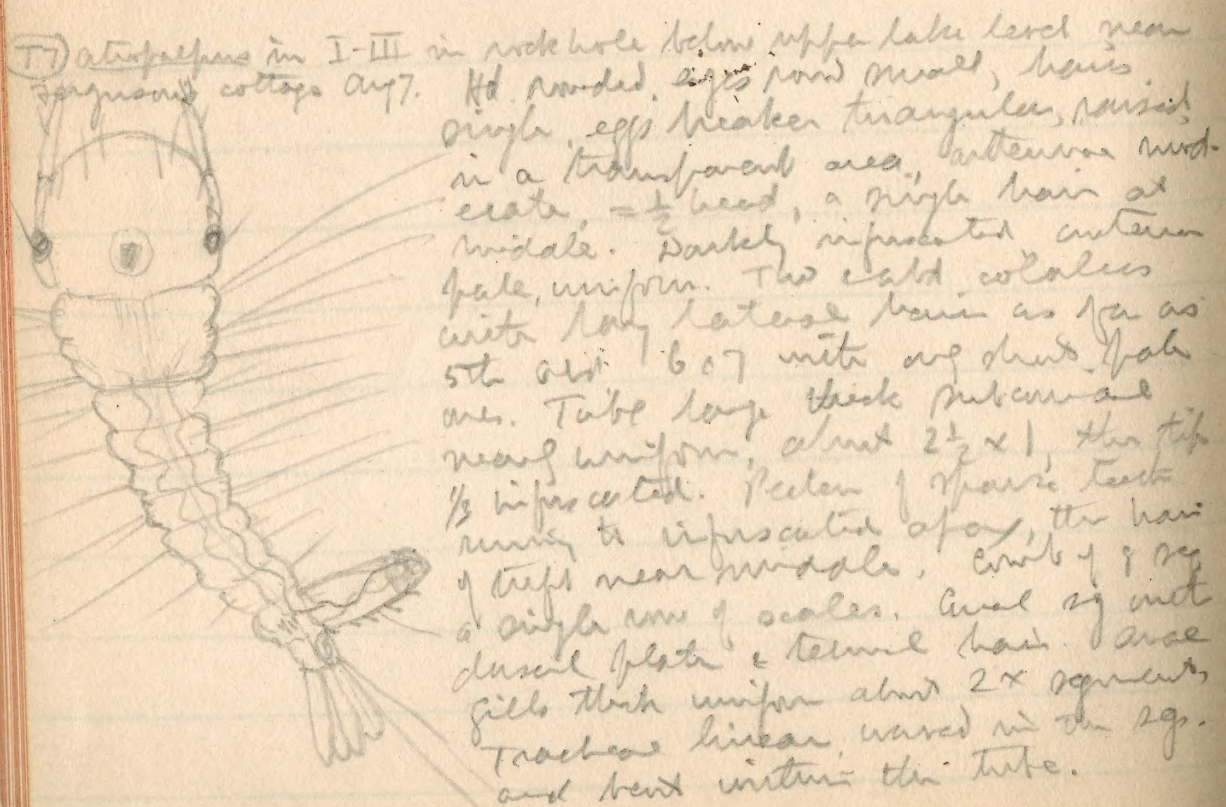 T7) atropalpus in I-III in rock hole below upper lake level near
Fergusons cottage Aug 7. Hd rounded, eyes round small, hairs
single, eggs breaker triangular, raised,
in a transparent area, antennae mod-
erate, = ½ head, a single hair at
middle. Darkly infuscated, antenna
pale, uniform. Th & abd colorless
with long lateral hairs as far as
5th abd. 6 & 7 with only short pale
ones. Tube large thick subconical
nearly uniform, about 2½ x 1, the tip
⅓ infuscated. Pecten of sparse teeth
running to infuscated apex, the hair
of tuft near middle. Comb of 8 sg
a single row of scales. Anal sg with
dorsal plate & terminal hairs. Anal
gills thick uniform about 2x segments
Tracheae linear, waved in the sgs.
and bent within the tube.